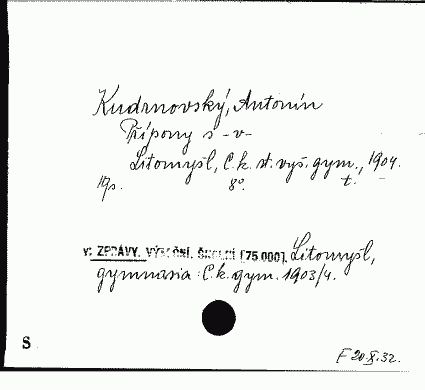 Kudrnovský, Antonín
Přípony s -v-
Litomyšl, C.k. st. vyš. gym., 1904.
19s. 8º. t.
v: ZPRÁVY, VÝROČNÍ, ŠKOLNÍ [75.000], Litomyšl,
gymnasia: C.k. gym. 1903/4.
S
F 20.X.32.